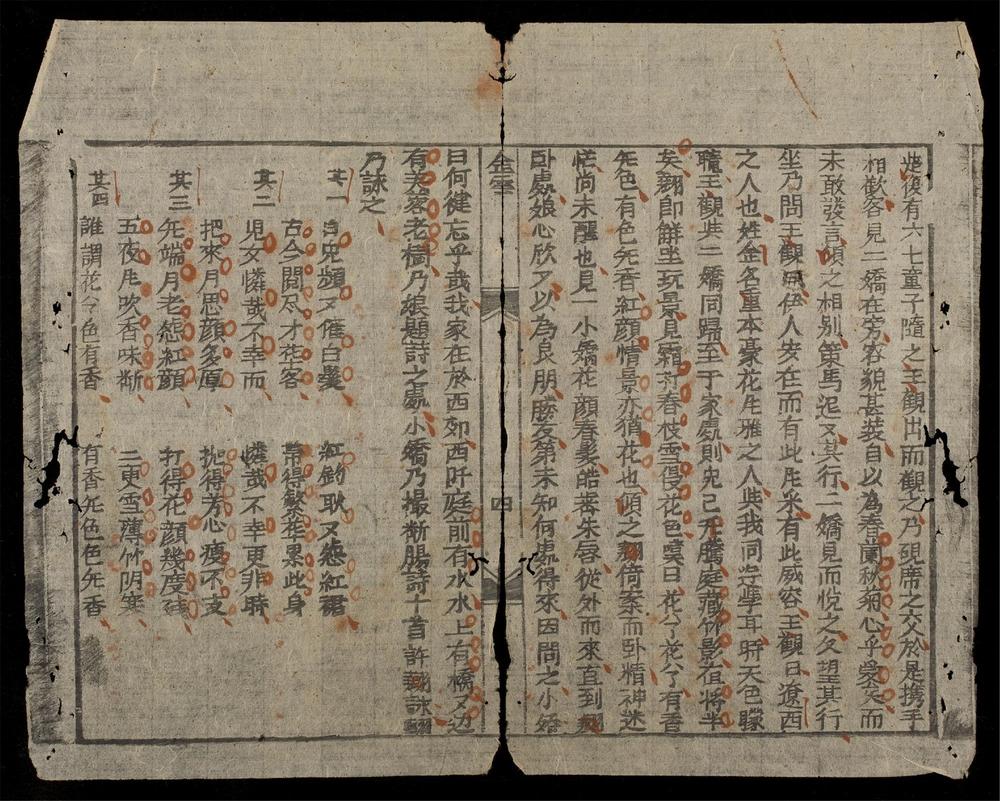 後有六七童子隨之王觀出而觀之乃硯席之交於是携手
相歡客見二嬌在旁容貌甚裝自以為春蘭秋菊心乎愛矣而
未敢發言頃之相別策馬迡又其行二嬌見而悅之久望其行
坐乃問王觀曰伊人安在而有此乎有此威容王觀曰遼西
之人也姓金名重本豪花風雅之人與我同遊學耳時天色朦
朧王觀與二嬌同歸至于家處則
矣翹即鮮坐玩景見霜打春枝雪侵花色嘆曰花兮花兮有香
无色有色无香紅顏情景亦猶花也頃之翹倚案而卧精神迷
茫尚未醒也見一小嬌花顏春髮皓齒朱唇從外而來直到翹
卧處娘心欣又以為良朋勝友第未知何處得來因問之小嬌
金雲
四
曰何健忘乎哉我家在於西郊西阡庭前有水水上有橋又边
有芙蓉老樹乃娘題詩之處小嬌乃撮斷腸詩十首許翹詠翹
乃詠之
其一 頻又催白髮 紅鈞耿又愁紅裙
古今閱尽才在客 常得繁華累此身
其二 児女憐哉不幸而 憐哉不幸更非時
把來月思顏多厚 拋得芳心瘦不支
其三 无端月老態紅顏 打得花顏幾度殘
五夜風吹香味断 三更雪薄竹阴寒
其四 誰謂花兮色有香 有香无色色无香